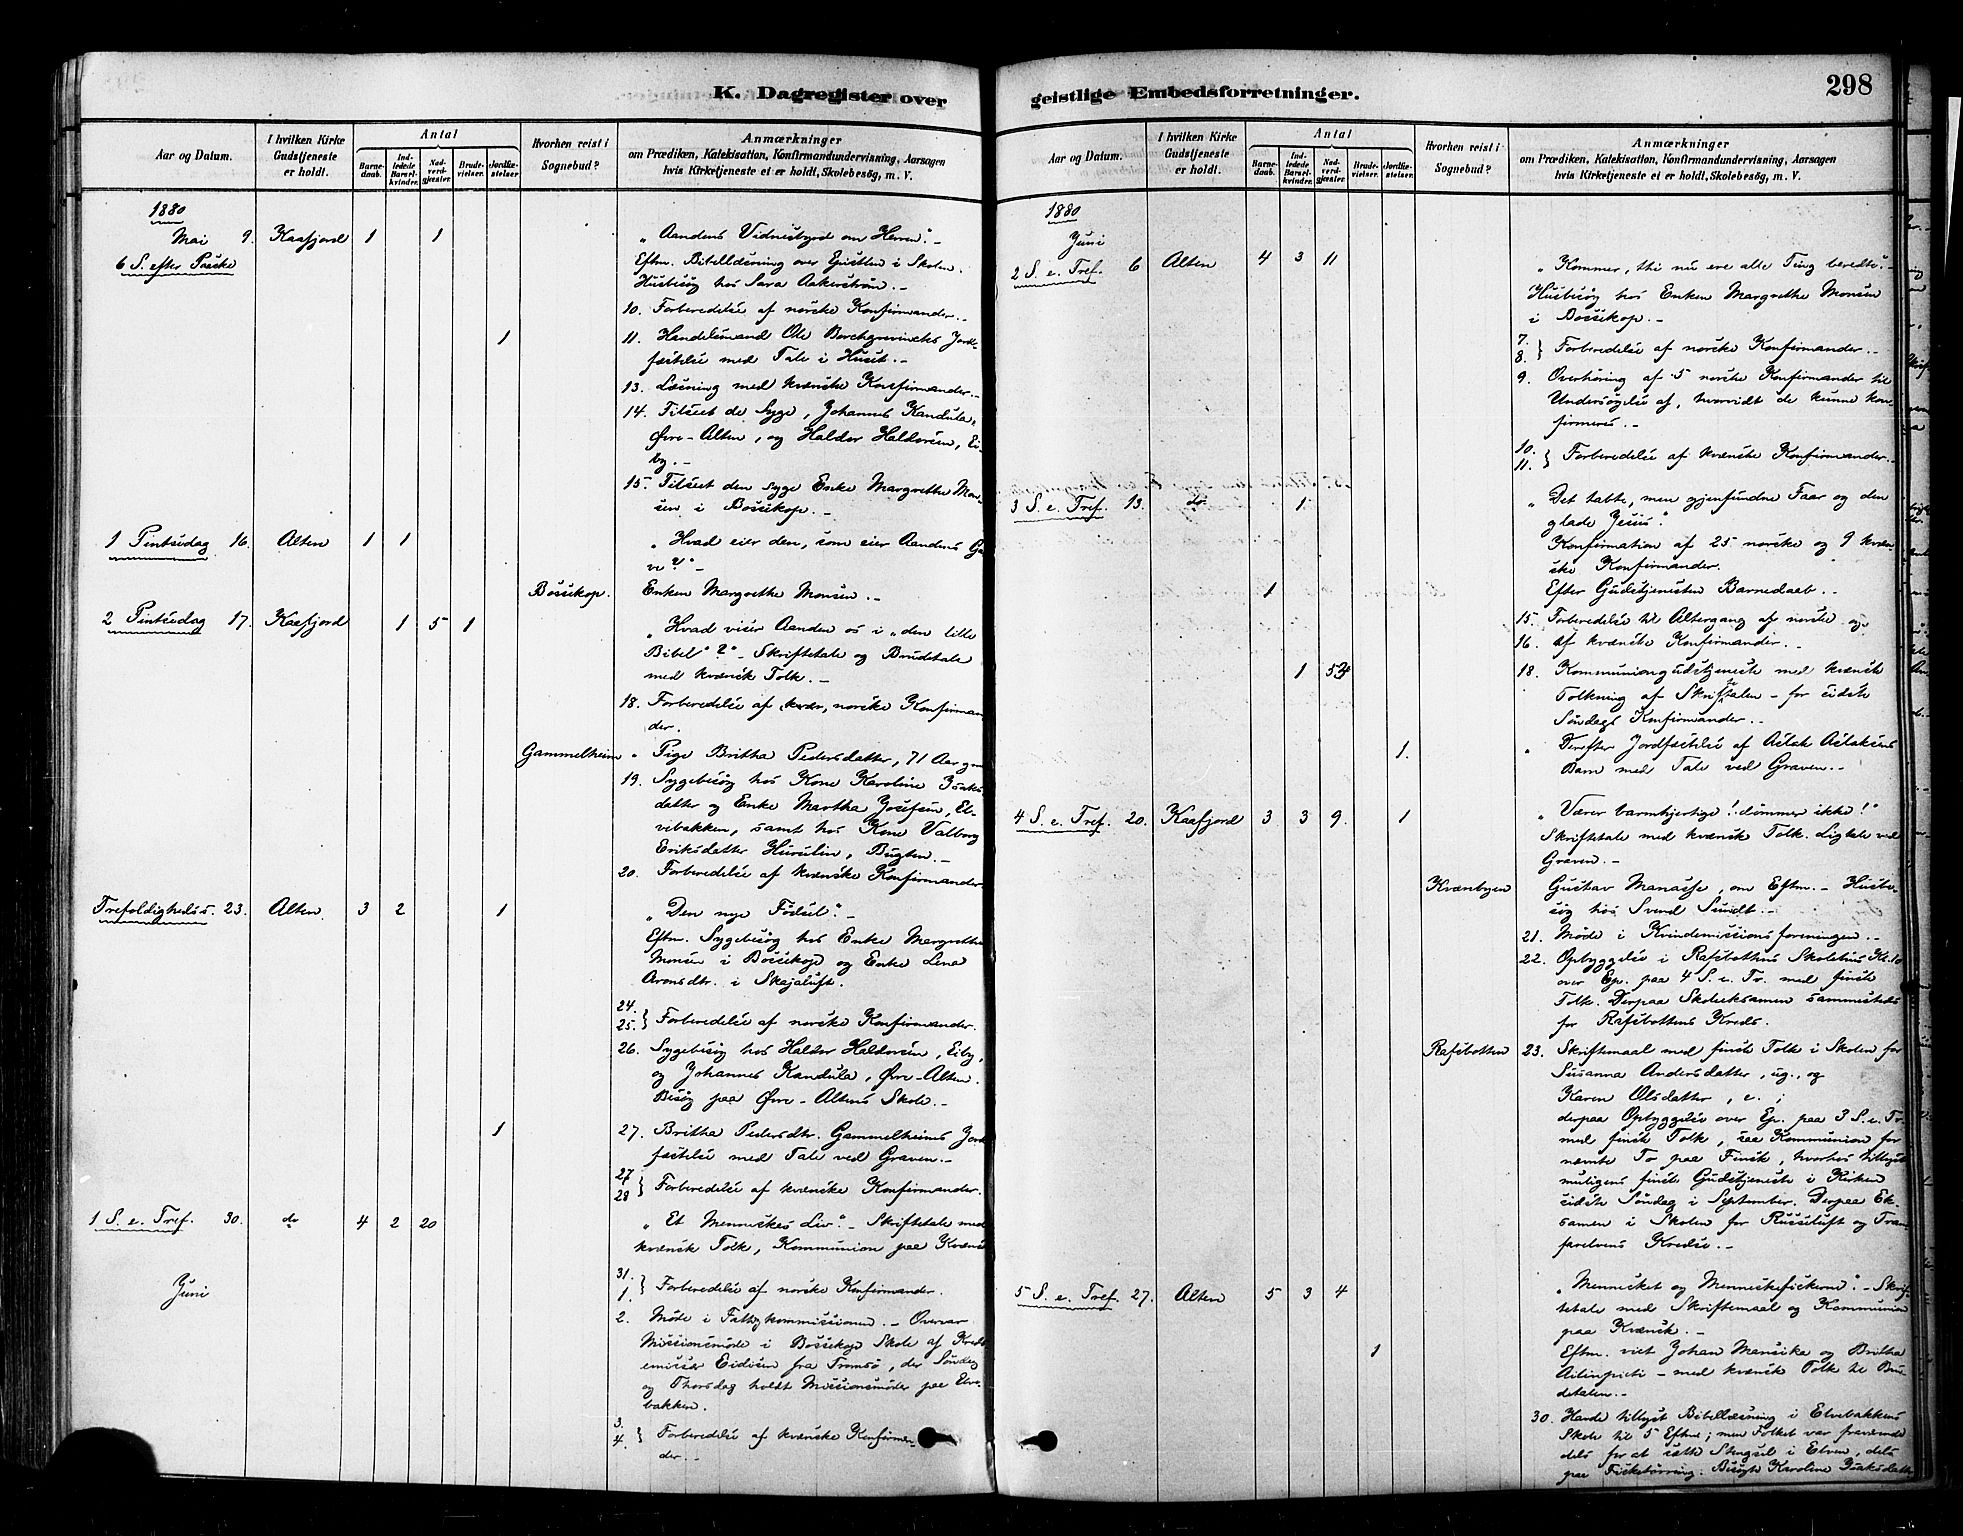 K. Dagregister over
Aar og Datum.
I hvilken Kirke Gudstjeneste er holdt.
Antal
Barnedaab.
Indledede Barselkvinder.
Nadverdgjæster.
Brudevielser.
Jordfæstelser.
Hvorhen reist i Sognebud?
Anmærkninger
om Prædiken, Katekisation, Konfirmandundervisning, Aarsagen
hvis Kirketjeneste ei er holdt, Skolebesøg, m. V.
1880
Mai 9. Kaafjord 1 1 „Aandens Vidnesbyrd om Herren“. –
6 S. efter Paaske Eftm. Bibellæsning over Epistlen i Skolen.
Husbesøg hos Sara Aakerstrøm. –
10. Forberedelse af norske Konfirmander. –
1 11. Handelsmand Ole Borchgrevincks Jord-
fæstelse med Tale i Huset. –
13. Læsning med kvænske Konfirmander. –
14. Tilseet de Syge, Johannes Kandula,
Øvre-Alten, og Haldor Haldorsen, Ei-
by. –
15. Tilseet den syge Enke Margrethe Mon-
sen i Bossekop. –
1 Pintsedag 16. Alten 1 1 „Hvad eier den, som eier Aandens Ga-
ve?“ –
Bossekop. Enken Margrethe Monsen. –
2 Pintsedag 17. Kaafjord 1 5 1 „Hvad viser Aanden os i „den lille
Bibel“?“ – Skriftetale og Brudetale
med kvænsk Tolk. –
18. Forberedelse af norske Konfirman-
der.
Gammelheim „ Pige Britha Pedersdatter, 71 Aar
19. Sygebesøg hos Kone Karoline Isaks-
datter og Enke Martha Josefsen, El-
vebakken, samt hos Kone Valborg
Eriksdatter Hurulin, Bugten. –
20. Forberedelse af kvænske Konfirmander.
Trefoldigheds. 23. Alten. 3 2 1 „Den nye Fødsel“. –
Eftm. Sygebesøg hos Enke Margrethe
Monsen i Bossekop og Enke Lena
Aronsdtr. i Skajaluft.
24.
25. } Forberedelse af norske Konfirmander.
26. Sygebesøg hos Haldor Haldorsen, Eiby,
og Johannes Kandula, Øvre-Alten.
Besøg paa Øvre-Altens Skole. –
1 27. Britha Pedersdtr. Gammelheims Jord-
fæstelse med Tale ved Graven. –
27
28 } Forberedelse af kvænske Konfirmander.
1 S. e. Tref. 30. do 4 2 20 „Et Menneskes Liv“. – Skriftetale med
kvænsk Tolk, Kommunion paa Kvænsk
Juni 31.
1. } Forberedelse af norske Konfirmander.
2. Møde i Fattigkommissionen. – Overvar
Missionsmøde i Bossekop Skole af Kreds-
emissær Eidisen fra Tromsø, der Søndag
og Thorsdag holdt Missionsmøder paa Elve-
bakken.
3.
4. } Forberedelse af kvænske Konfirman-
der. –
geistlige Embedsforretninger.
298
Aar og Datum.
I hvilken Kirke Gudstjeneste er holdt.
Antal
Barnedaab.
Indledede Barselkvinder.
Nadverdgjæster.
Brudevielser.
Jordfæstelser.
Hvorhen reist i Sognebud?
Anmærkninger
om Prædiken, Katekisation, Konfirmandundervisning, Aarsagen
hvis Kirketjeneste ei er holdt, Skolebesøg, m. V.
1880
Juni
2 S. e. Tref. 6 Alten 4 3 11 „Kommer, thi nu ere alle Ting beredte“. –
Husbesøg hos Enken Margrethe Monsen
i Bossekop. –
7.
8. } Forberedelse af norske Konfirmander. –
9. Overhøring af 5 norske Konfirmander til
Undersøgelse af, hvorvidt de kunne kon-
firmeres. –
10.
11. } Forberedelse af kvænske Konfirmander. –
3 S. e. Tref. 13. do 1 „Det tabte, men gjenfundne Faar og den
glade Jesus“.
Konfirmation af 25 norske og 9 kvæn-
ske Konfirmander.
1 Efter Gudstjenesten Barnedaab. –
15. Forberedelse til Altergang af norske og
16. af kvænske Konfirmander. –
1 18. Kommuniongudstjeneste med kvænsk
Tolkning af Skriftetalen – for sidste
Søndags Konfirmander. –
1. „ Derefter Jordfæstelse af Aslak Aslaksens
Barn med Tale ved Graven. –
4 S. e. Tref. 20. Kaafjord 3 3 9. 1 „Værer barmhjertige! dømmer ikke!“
Skriftetale med kvænsk Tolk. Ligtale ved
Graven. –
Kvænbyen Gustav Manasse, om Eftm. – Husbe-
søg hos Svend Sundt. –
21. Møde i Kvindemissionsforeningen. –
22. Opbyggelse i Rafsbottens Skolehus Kl. 10
over Ep. paa 4 S. e. Tr. med finsk
Tolk. Derpaa Skoleeksamen sammesteds
for Rafsbottens Kreds.
Rafsbotten 23. Skriftemaal med finsk Tolk i Skolen for
Susanna Andersdatter, ug., og
Karen Olsdatter, e.;
derpaa Opbyggelse over Ep. paa 3 S. e. Tr.
med finsk Tolk, saa Kommunion for
nævnte To paa Finsk, hvorhos tillyst
muligens finsk Gudstjeneste i Kirken
sidste Søndag i September. Derpaa Ek-
samen i Skolen for Russeluft og Tran-
farelvens Kredse. –
5 S. e. Tref. 27. Alten 5 3 4 „Mennesket og Menneskefiskerne“. – Skrif-
tetale med Skriftemaal og Kommunion
paa Kvænsk. –
1 Eftm. viet Johan Mansika og Britha
Ailinpieti – med kvænsk Tolk til Bru-
detalen. –
30. Havde tillyst Bibellæsning i Elvebakkens
Skole til 5 Eftm.; men Folket var fraværende
dels for at sætte Stengsel i Elven, dels
paa Fisketørring. Besøgte Karoline Isaksdatter